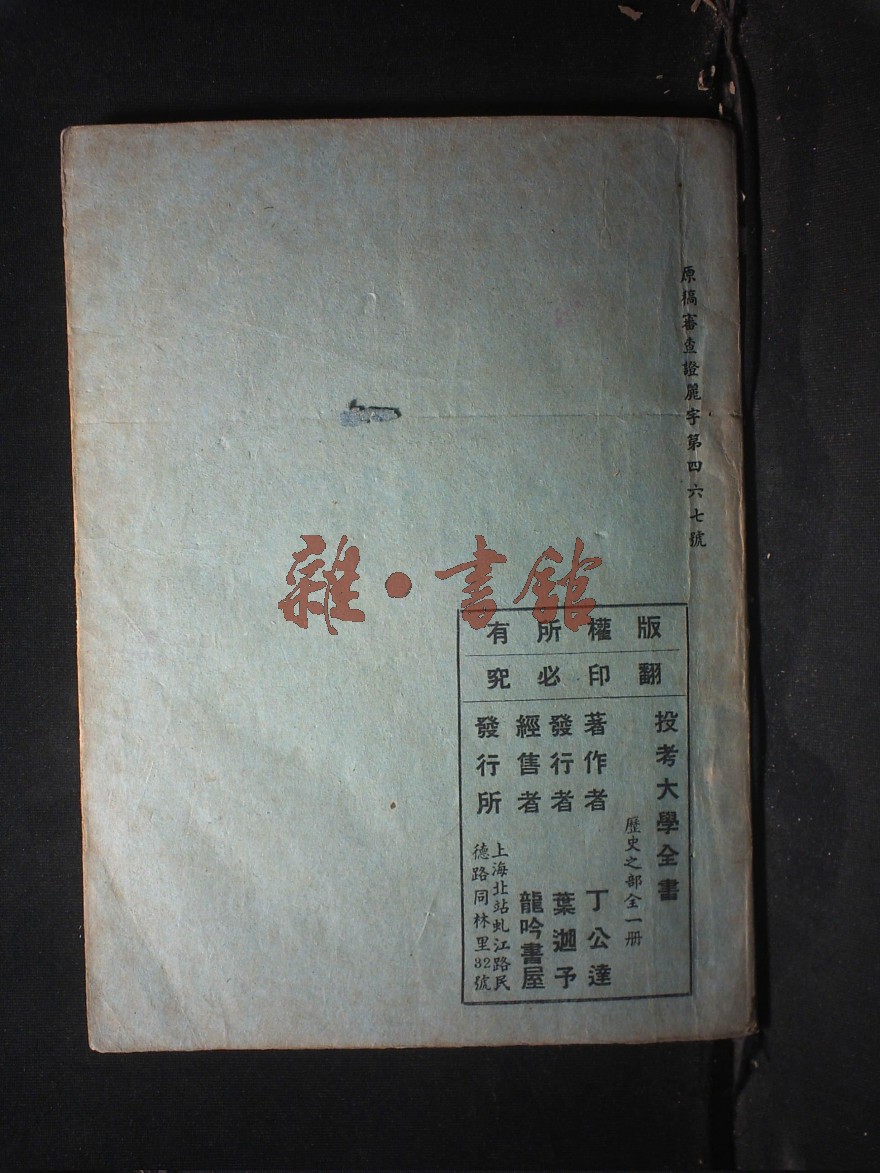 原稿審查證麗字第四六七號
雜·書館
版權所有
翻印必究
投考大學全書
歷史之部全一冊
著作者 丁公達
發行者 葉迦予
經售者 龍吟書屋
發行所 上海北站虬江路民
德路同林里32號